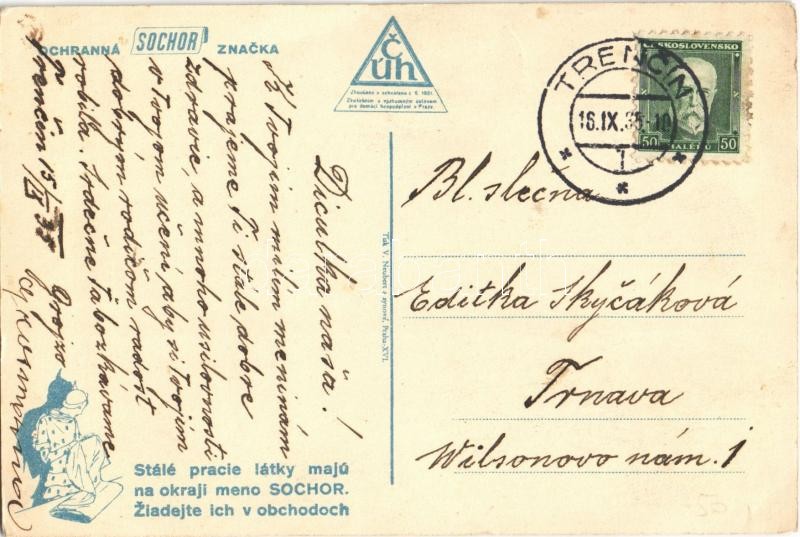 OCHRANNÁ SOCHOR ZNAČKA
Č
úh
Zkoušeno a schváleno r. č. 1031.
Zkušebním a výzkumným ústavem
pro domácí hospodářství v Praze.
TRENČÍN
16.IX.35-10
1
ČESKOSLOVENSKO
50 HALÉŘŮ 50
naša!
K Tvojim milím meninám
prajeme Ti stále dobré
zdravie, a mnoho usilovnosti
v Tvojom učení, aby si Tvojím
dobrým rodičom radosť
robila. Srdečne Ťa bozkávame
Trenčín 15/IX 35
Tisk V. Neubert a synové, Praha-XVI.
Bl. slečna
Editka Skyčáková
Trnava
Wilsonovo nám. 1
Stálé pracie látky majú
na okraji meno SOCHOR.
Žiadejte ich v obchodoch
50